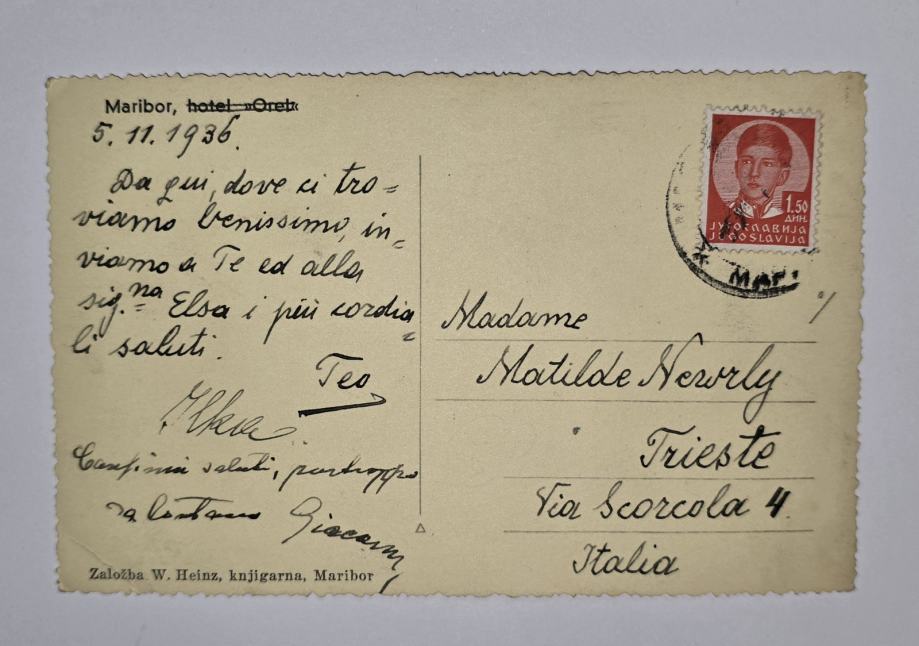 Maribor, hotel »Orel«
5. 11. 1936.
Da qui, dove ci tro=
viamo benissimo, in-
viamo a Te ed alla
sig.na Elsa i più cordia=
li saluti.
Teo
Ilka
Carissimi saluti, purtroppo
da lontano Giacomo
Založba W. Heinz, knjigarna, Maribor
1.50
ДИН.
ЈУГОСЛАВИЈА
JUGOSLAVIJA
Madame
Matilde
Trieste
Via Scorcola 4.
Italia